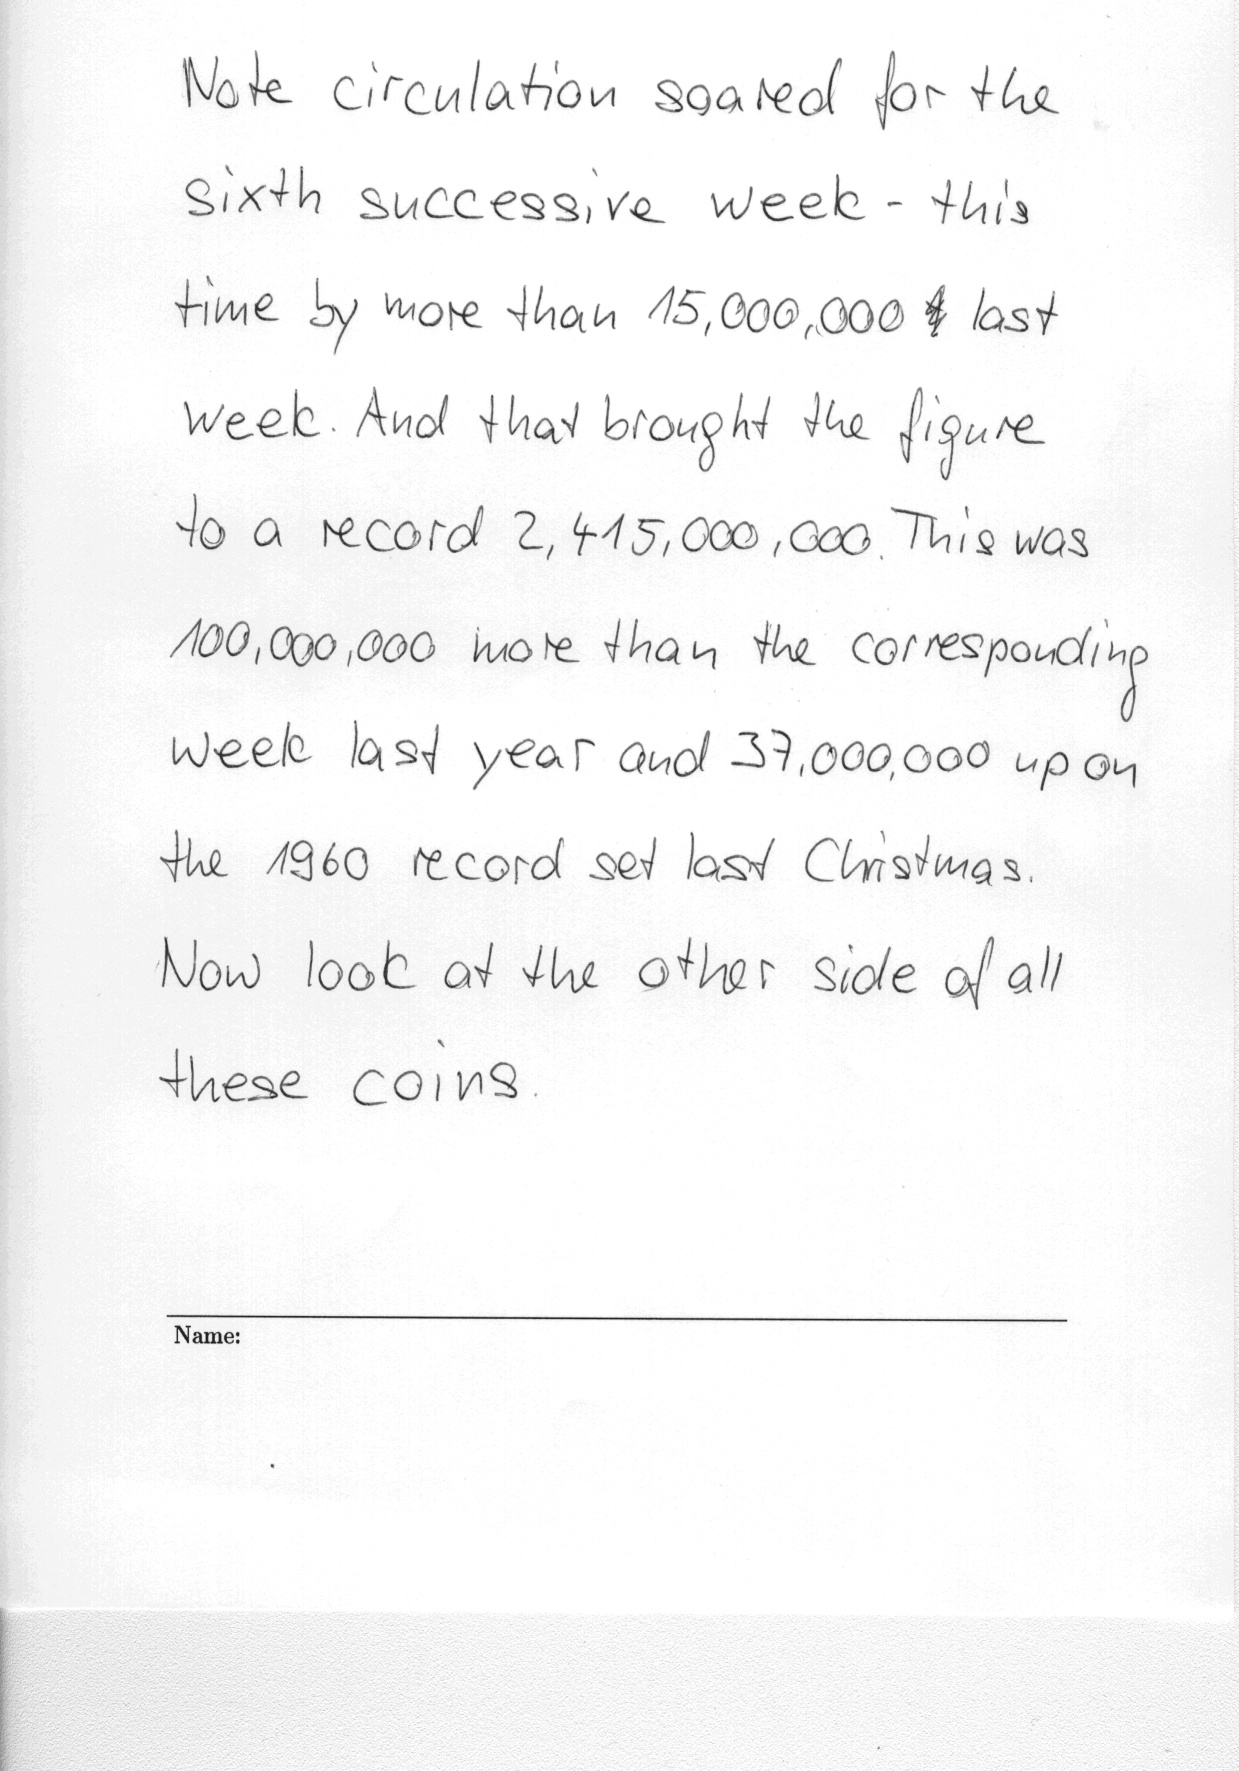 Note circulation soared for the
sixth successive week - this
time by more than 15,000,000 last
week. And that brought the figure
to a record 2,415,000,000. This was
100,000,000 more than the corresponding
week last year and 37,000,000 up on
the 1960 record set last Christmas.
Now look at the other side of all
these coins.
Name: